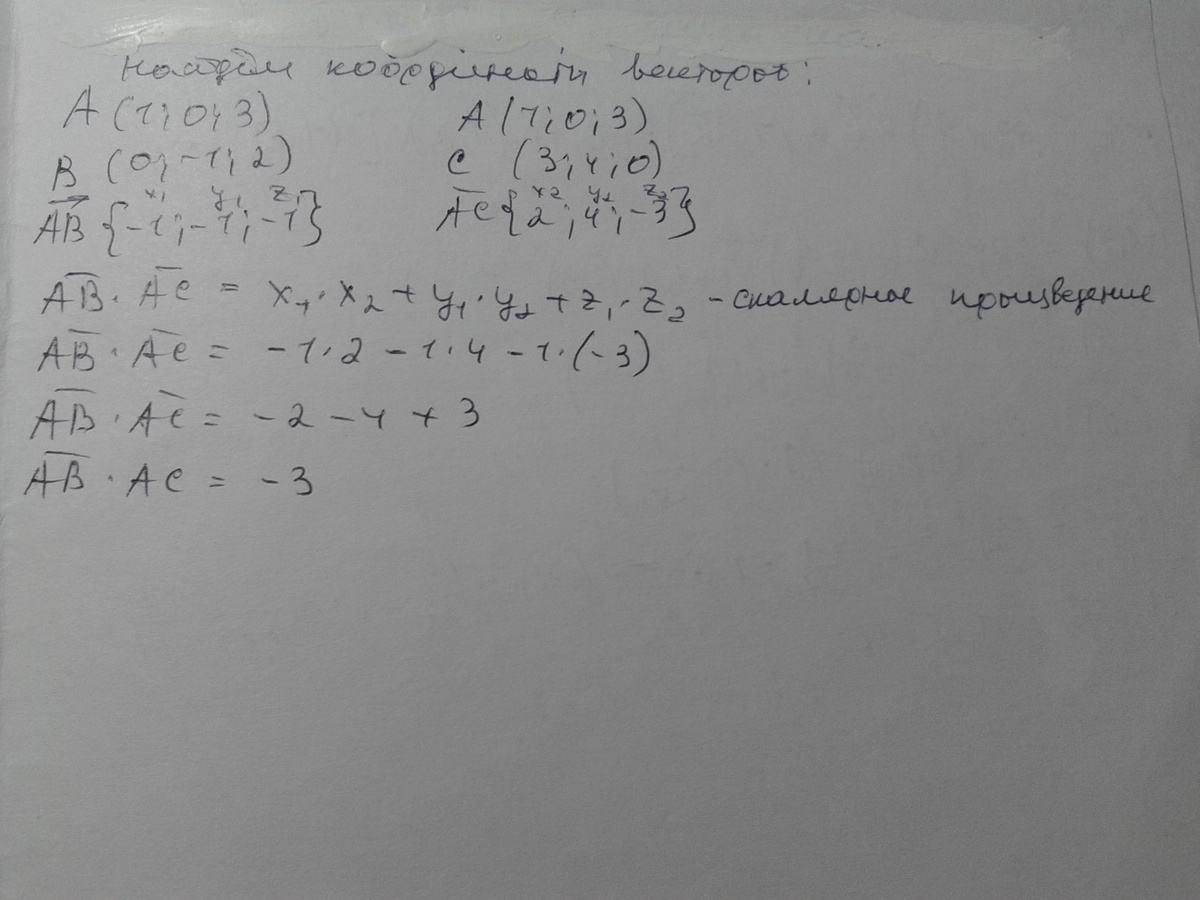 Найдём координаты векторов:
A (1; 0; 3) A (1; 0; 3)
B (0; -1; 2) C (3; 4; 0)
x₁ y₁ z₁ x₂ y₂ z₂
AB {-1; -1; -1} AC {2; 4; -3}
AB · AC = x₁ · x₂ + y₁ · y₂ + z₁ · z₂ - скалярное произведение
AB · AC = -1 · 2 - 1 · 4 - 1 · (-3)
AB · AC = -2 - 4 + 3
AB · AC = -3